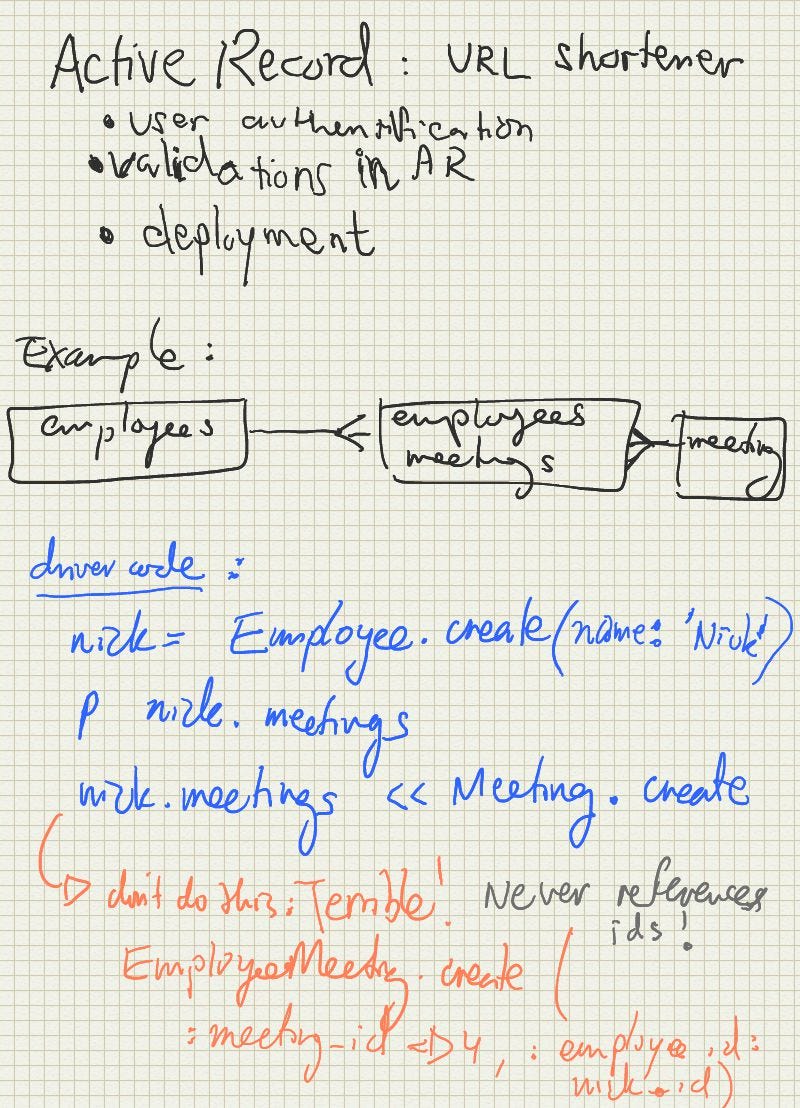 Active Record : URL shortener
• user authentification
• validations in AR
• deployment
Example :
employees
employees
meetings
meeting
driver code :
nick = Employee. create (name: 'Nick')
p nick. meetings
nick. meetings << Meeting. create
don't do this: Terrible!
Never references
ids!
EmployeeMeeting. create (
:meeting_id => 4, : employee_id:
nick.id)